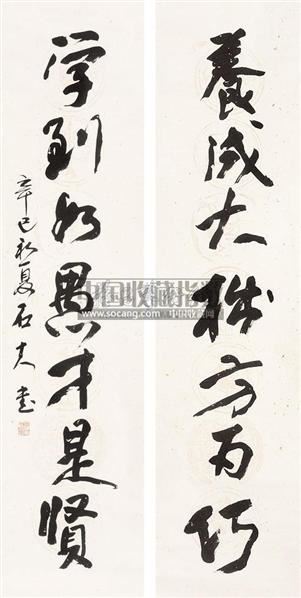 養成大拙方為巧
学到如愚才是賢
辛巳初夏石夫书
中国收藏指数
www.socang.com 中国收藏网